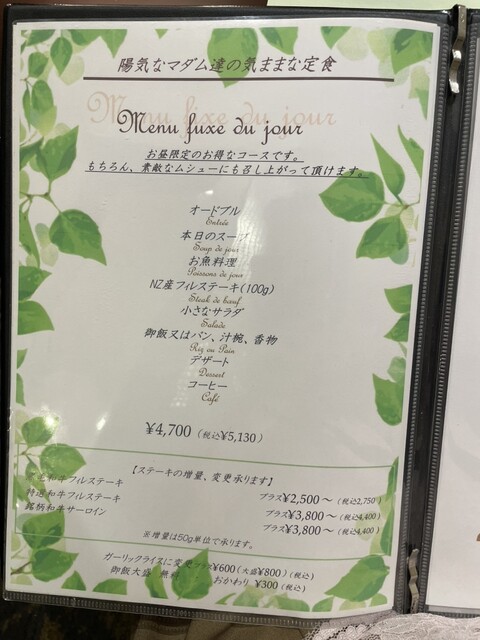 陽気なマダム達の気ままな定食
Menu fixe du jour
Menu fuxe du jour
お昼限定のお得なコースです。
もちろん、素敵なムシューにも召し上がって頂けます。
オードブル
Entrée
本日のスープ
Soup de jour
お魚料理
Poissons de jour
NZ産フィレステーキ(100g)
Steak de bœuf
小さなサラダ
Salade
御飯又はパン、汁椀、香物
Riz ou Pain
デザート
Dessert
コーヒー
Café
¥4,700（税込¥5,130）
【ステーキの増量、変更承ります】
黒毛和牛フィレステーキ プラス¥2,500～（税込2,750）
特選和牛フィレステーキ プラス¥3,800～（税込4,400）
銘柄和牛サーロイン プラス¥3,800～（税込4,400）
※増量は50g単位で承ります。
ガーリックライスに変更プラス¥600（大盛¥800）（税込）
御飯大盛 無料 おかわり ¥300（税込）